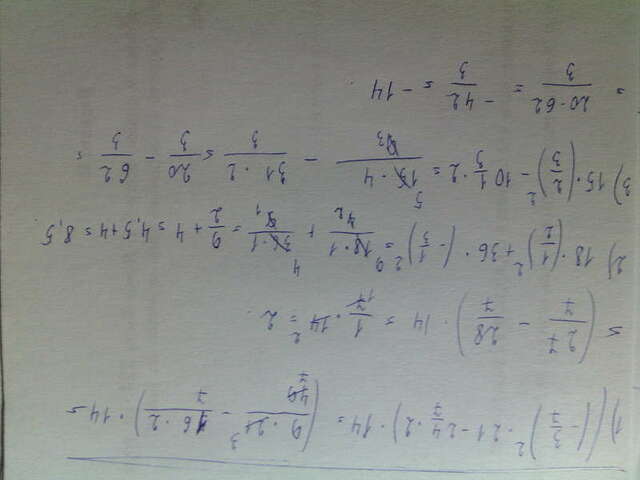 1) ((-3/7)² · 21 - 2 4/7 · 2) · 14 = (9 · 21³/49₇ - 16 · 2/7) · 14 =
= (27/7 - 28/7) · 14 = 1/7 · 14² = 2.
2) 18 · (1/2)² + 36 · (-1/3)² = ⁹18 · 1/4₂ + ⁴36 · 1/9₁ = 9/2 + 4 = 4,5 + 4 = 8,5.
3) 15 · (2/3)² - 10 1/3 · 2 = ⁵15 · 4/9₃ - 31 · 2/3 = 20/3 - 62/3 =
= 20 - 62/3 = -42/3 = -14.